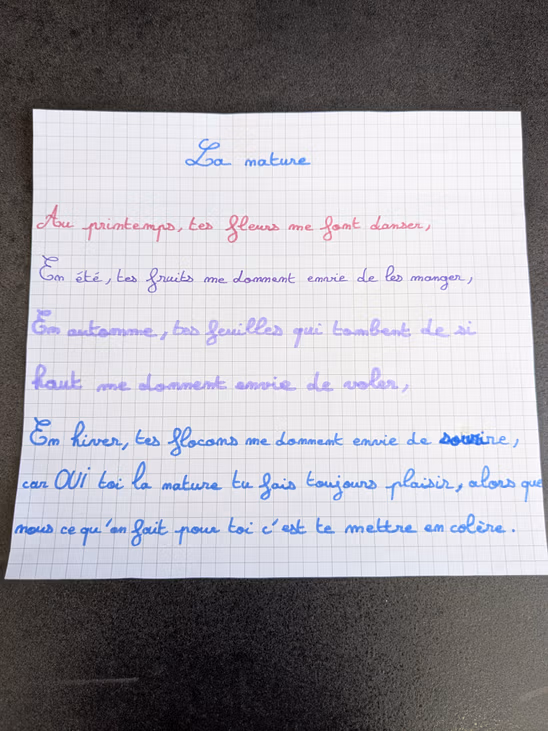 La nature
Au printemps, tes fleurs me font danser,
En été, tes fruits me donnent envie de les manger,
En automne, tes feuilles qui tombent de si
haut me donnent envie de voler,
En hiver, tes flocons me donnent envie de sourire,
car OUI toi la nature tu fais toujours plaisir, alors que
nous ce qu'on fait pour toi c'est te mettre en colère.